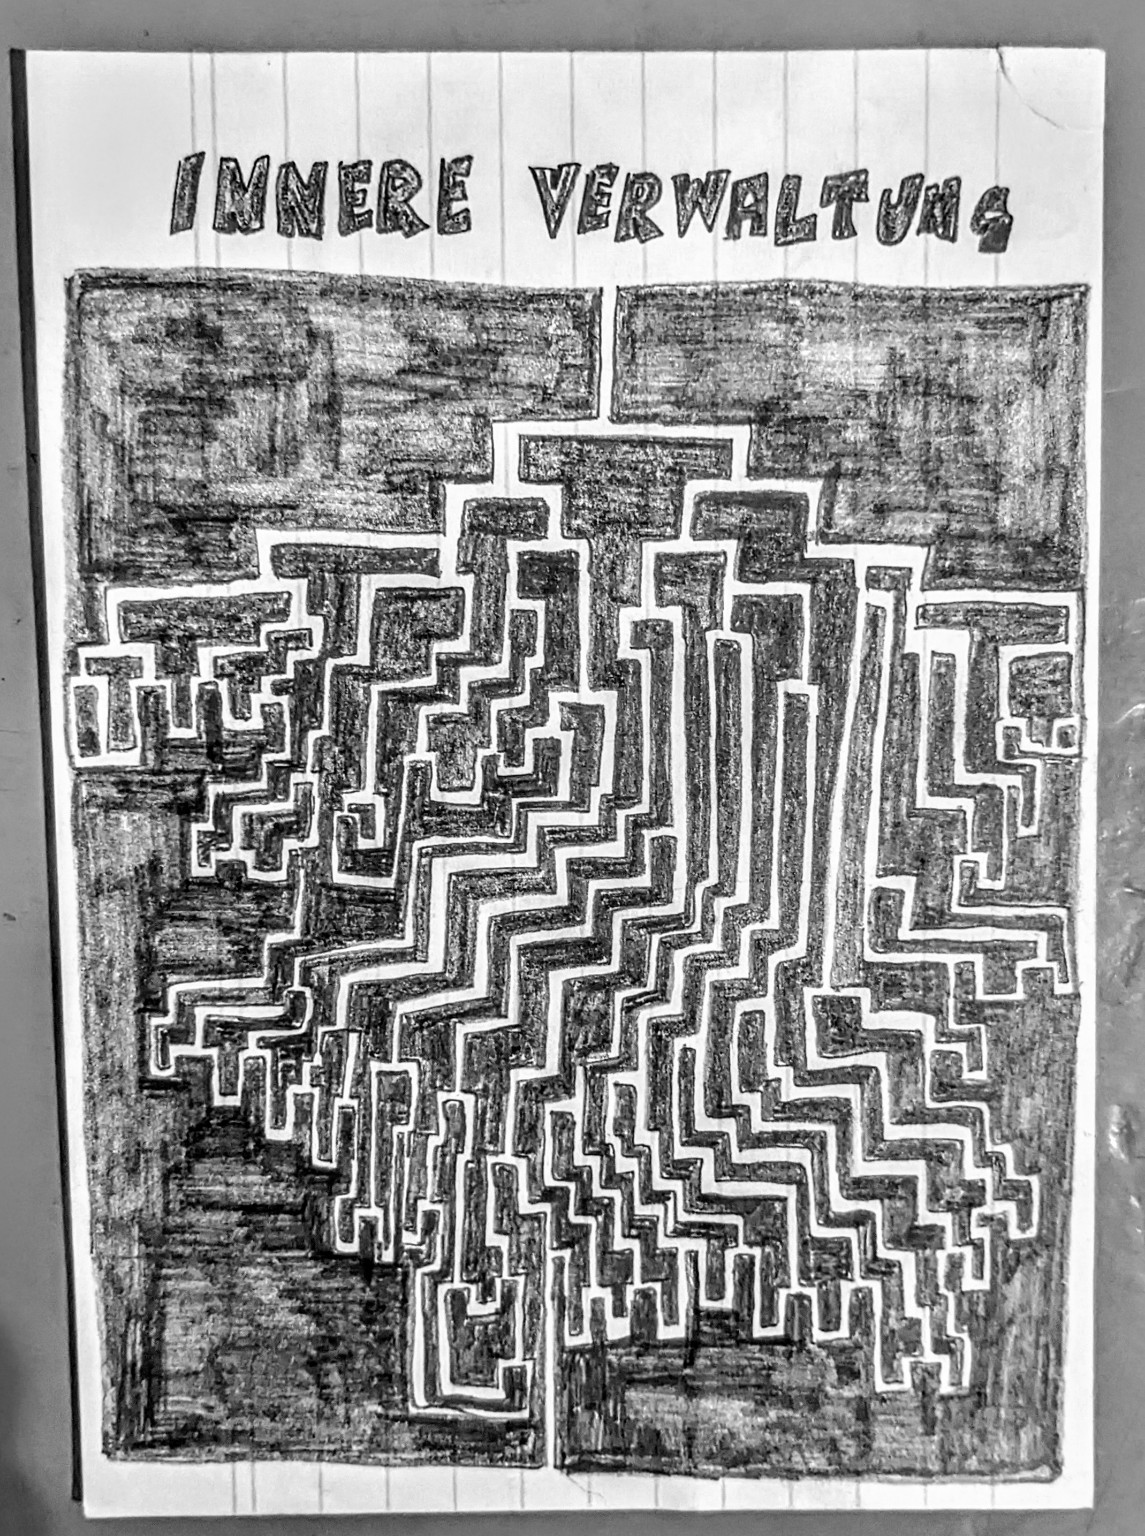 INNERE VERWALTUNG